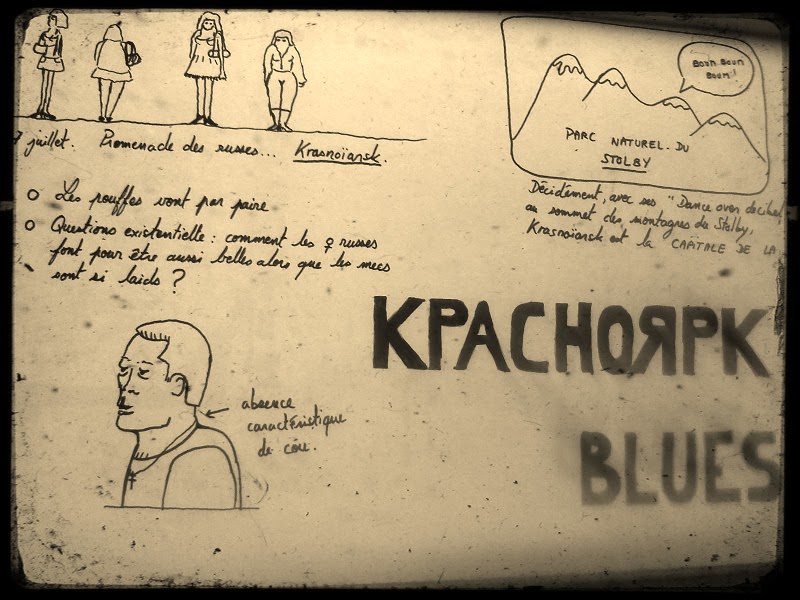 juillet. Promenade des russes... Krasnoïarsk.
Les pouffes vont par paire
Questions existentielle : comment les ♀ russes
font pour être aussi belles alors que les mecs
sont si laids ?
absence
caractéristique
de cou.
BOUM BOUM
BOUM!
PARC NATUREL DU
STOLBY
Décidément, avec ses "Dance over
au sommet des montagnes du Stolby,
Krasnoïarsk est la CAPITALE DE LA
КРАСНОЯРК
BLUES